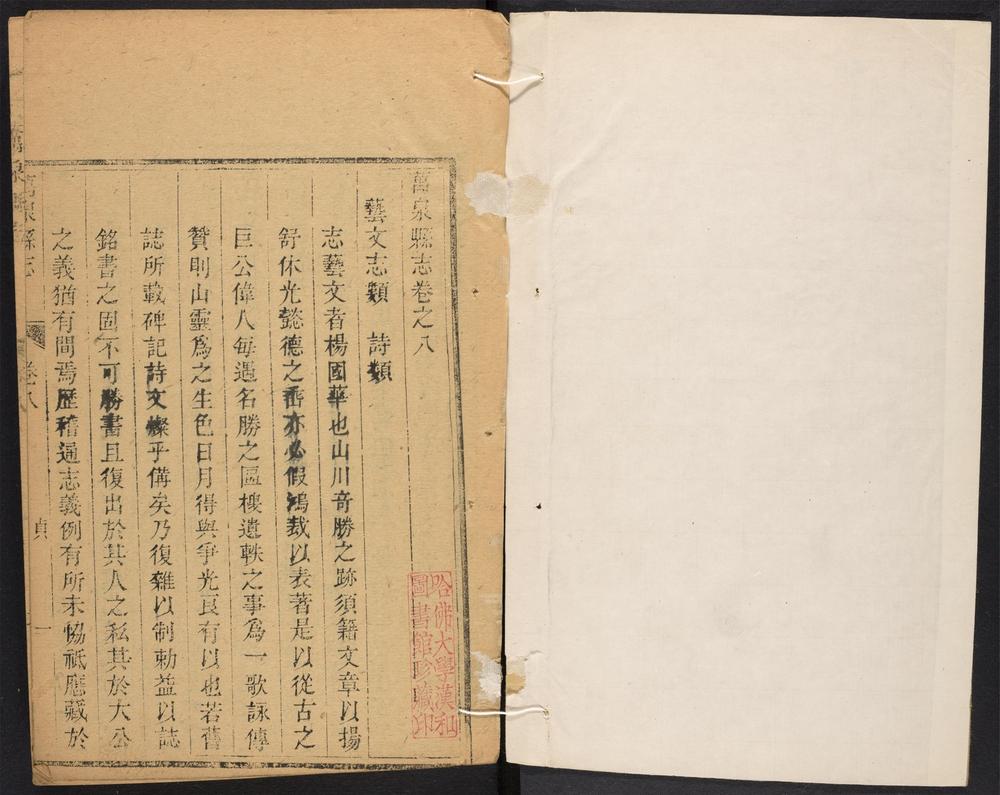 萬泉縣志卷之八
藝文志類　詩類
志藝文者楊國華也山川奇勝之跡須籍文章以揚
舒休光懿德之畱亦必假鴻裁以表著是以從古之
巨公偉人每遇名勝之區棲遺軼之事為一歌詠傳
贊則山靈為之生色日月得與爭光良有以也若舊
誌所載碑記詩文燦乎備矣乃復雜以制勅益以誌
銘書之固不可勝書且復出於其人之私其於大公
之義猶有間焉歷稽通志義例有所未恊祗應藏於
萬泉縣志
卷八
貞
一
哈佛大學漢和
圖書館珍藏印